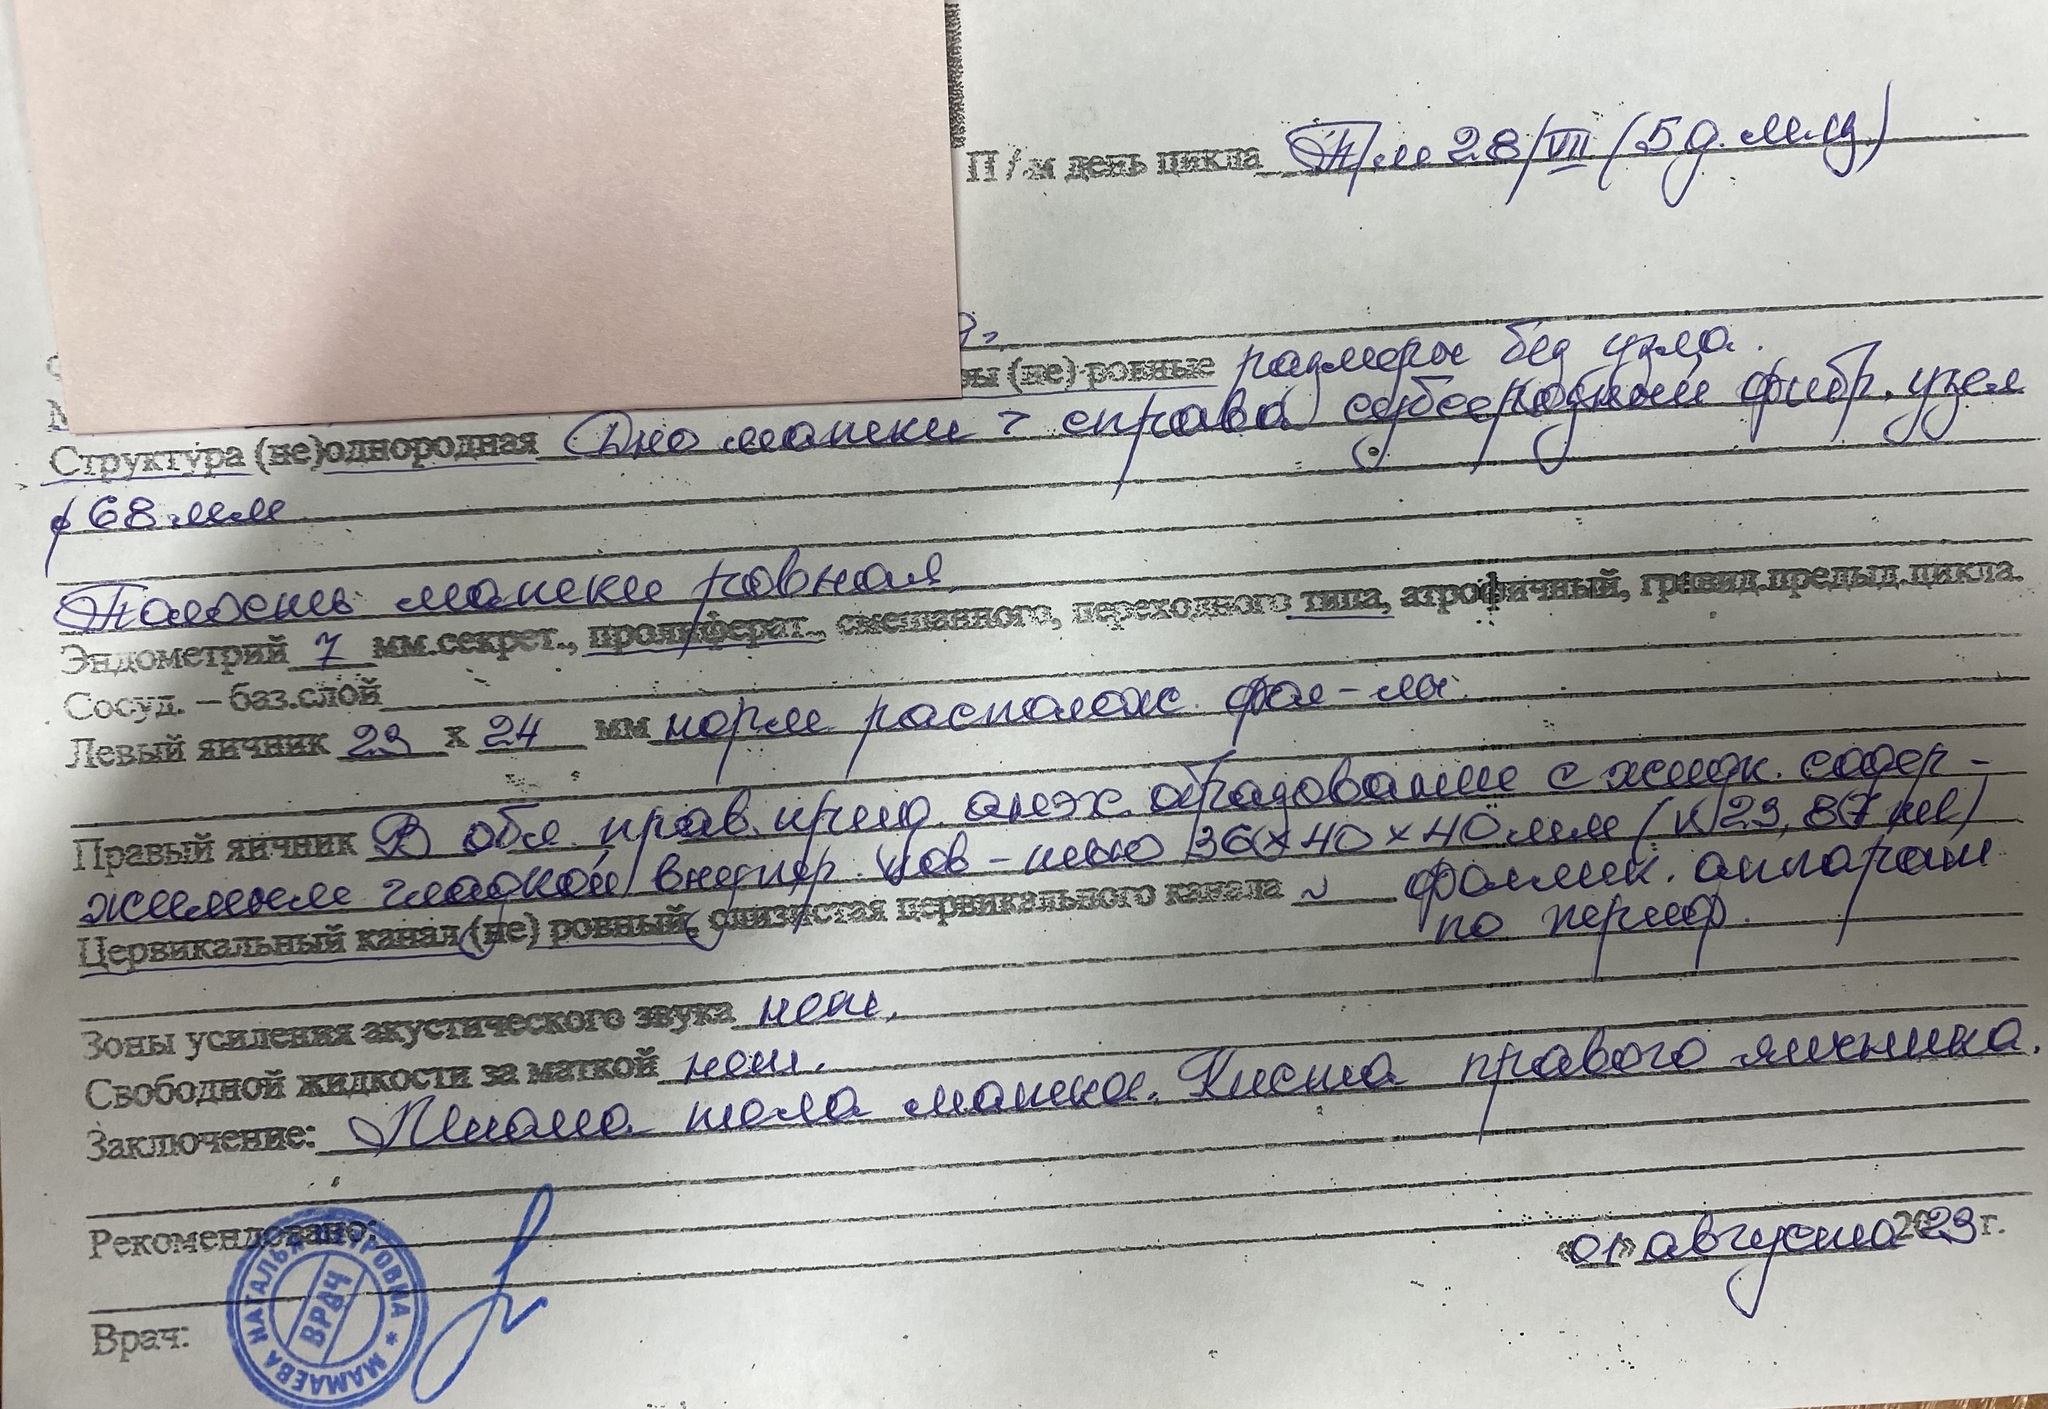 П / м день цикла П/м 28/VII (5 д. м.ц)
(не) ровные размеры без узла.
Структура (не)однородная Дно матки > справа субсерозный фибр. узел
⌀ 68 мм
Полость матки ровная.
Эндометрий 7 мм.секрет., пролиферат., смешанного, переходного типа, атрофичный, гравид.предыд.цикла.
Сосуд. – баз.слой
Левый яичник 23 х 24 мм норм располож. фол-лы.
Правый яичник В обл. прав. прид. анэх. образование с жидк. содер-
жимым гладкой внутр. пов-тью 36х40х40мм (V 23, 87 мл)
Цервикальный канал (не) ровный, слизистая цервикального канала N фоллик. аппарат
по периф.
Зоны усиления акустического звука нет.
Свободной жидкости за маткой нет.
Заключение: Миома тела матки. Киста правого яичника.
Рекомендовано:
«01» августа 2023 г.
Врач:
МАМАЕВА НАТАЛЬЯ ПЕТРОВНА *
ВРАЧ